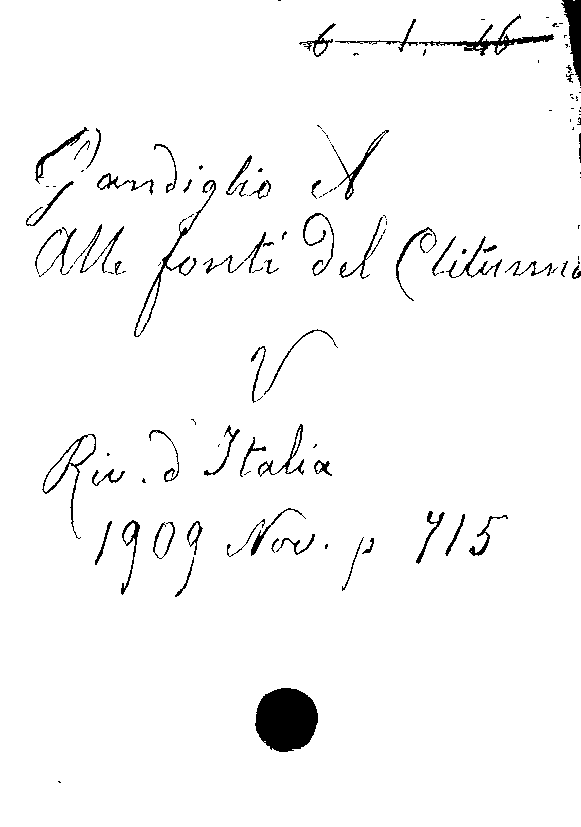 6. 1. 46
Gandiglio A
Alle fonti del Clitunno
V
Riv. d'Italia
1909 Nov. p 715